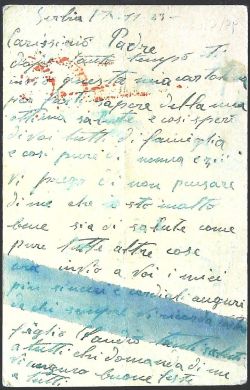 Berlin 17-11-43-
Carissimo Padre
dopo tanto tempo ti
invio questa mia cartolina
per farti sapere della mia
ottima salute e così spero
di voi tutti di famiglia
e così pure di nonna e zii
vi prego di non pensare
di me che io sto molto
bene sia di salute come
pure tutte altre cose
ora invio a voi i miei
più sinceri e cordiali auguri
di chi sempre vi ricorda vostro
figlio Claudio
a tutti chi domanda di me
vi auguro buone feste
a tutti